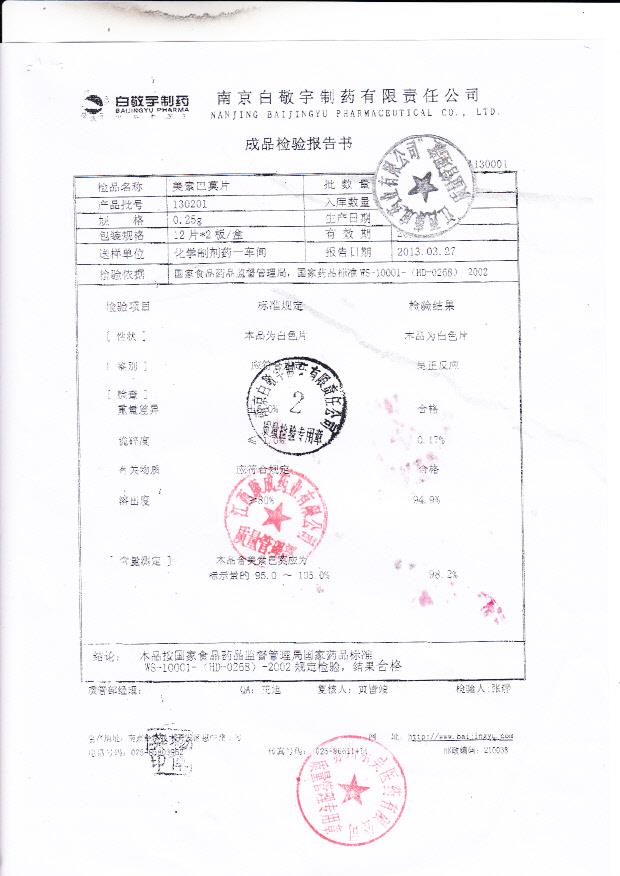 白敬宇制药
BAIJINGYU PHARMA
南京白敬宇制药有限责任公司
NANJING BAIJINGYU PHARMACEUTICAL CO., LTD.
成品检验报告书
130001
检品名称 美索巴莫片 批 数 量
产品批号 130201 入库数量
规 格 0.25g 生产日期
包装规格 12片*2板/盒 有 效 期
送样单位 化学制剂药一车间 报告日期 2013.03.27
检验依据 国家食品药品监督管理局,国家药品标准 WS-10001-(HD-0268) 2002
检验项目 标准规定 检验结果
[ 性状 ] 本品为白色片 本品为白色片
[ 鉴别 ] 应符合规定 呈正反应
[ 检查 ]
重量差异 合格
脆碎度 0.17%
有关物质 应符合规定 合格
溶出度 80% 94.9%
[ 含量测定 ] 本品含美索巴莫应为
标示量的 95.0 ~ 105.0% 98.2%
南京白敬宇制药有限责任公司
2
质量检验专用章
药业有限公司
质量管理部
结论: 本品按国家食品药品监督管理局国家药品标准
WS-10001-(HD-0268)-2002 规定检验,结果合格
质管部经理: QA: 复核人: 检验人:张婷
网 址:http://www.baijingyu.com
电话号码: 传真号码: 邮政编码: 210038
医药有限公司
质量管理专用章